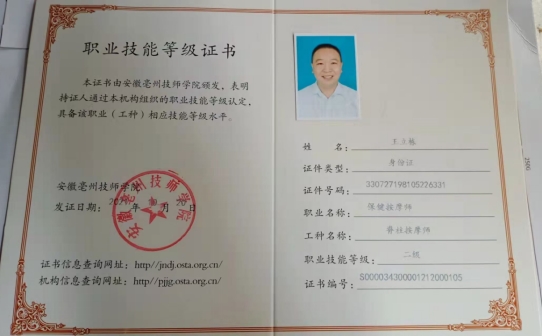 职业技能等级证书
本证书由安徽亳州技师学院颁发，表明
持证人通过本机构组织的职业技能等级认定，
具备该职业（工种）相应技能等级水平。
安徽亳州技师学院
发证日期：
安徽亳州技师学院
证书信息查询网址：http//jndj.osta.org.cn/
机构信息查询网址：http//pjjg.osta.org.cn/
姓名：
证件类型：身份证
证件号码：330727198105226331
职业名称：保健按摩师
工种名称：脊柱按摩师
职业技能等级：二级
证书编号：S000034300001212000105